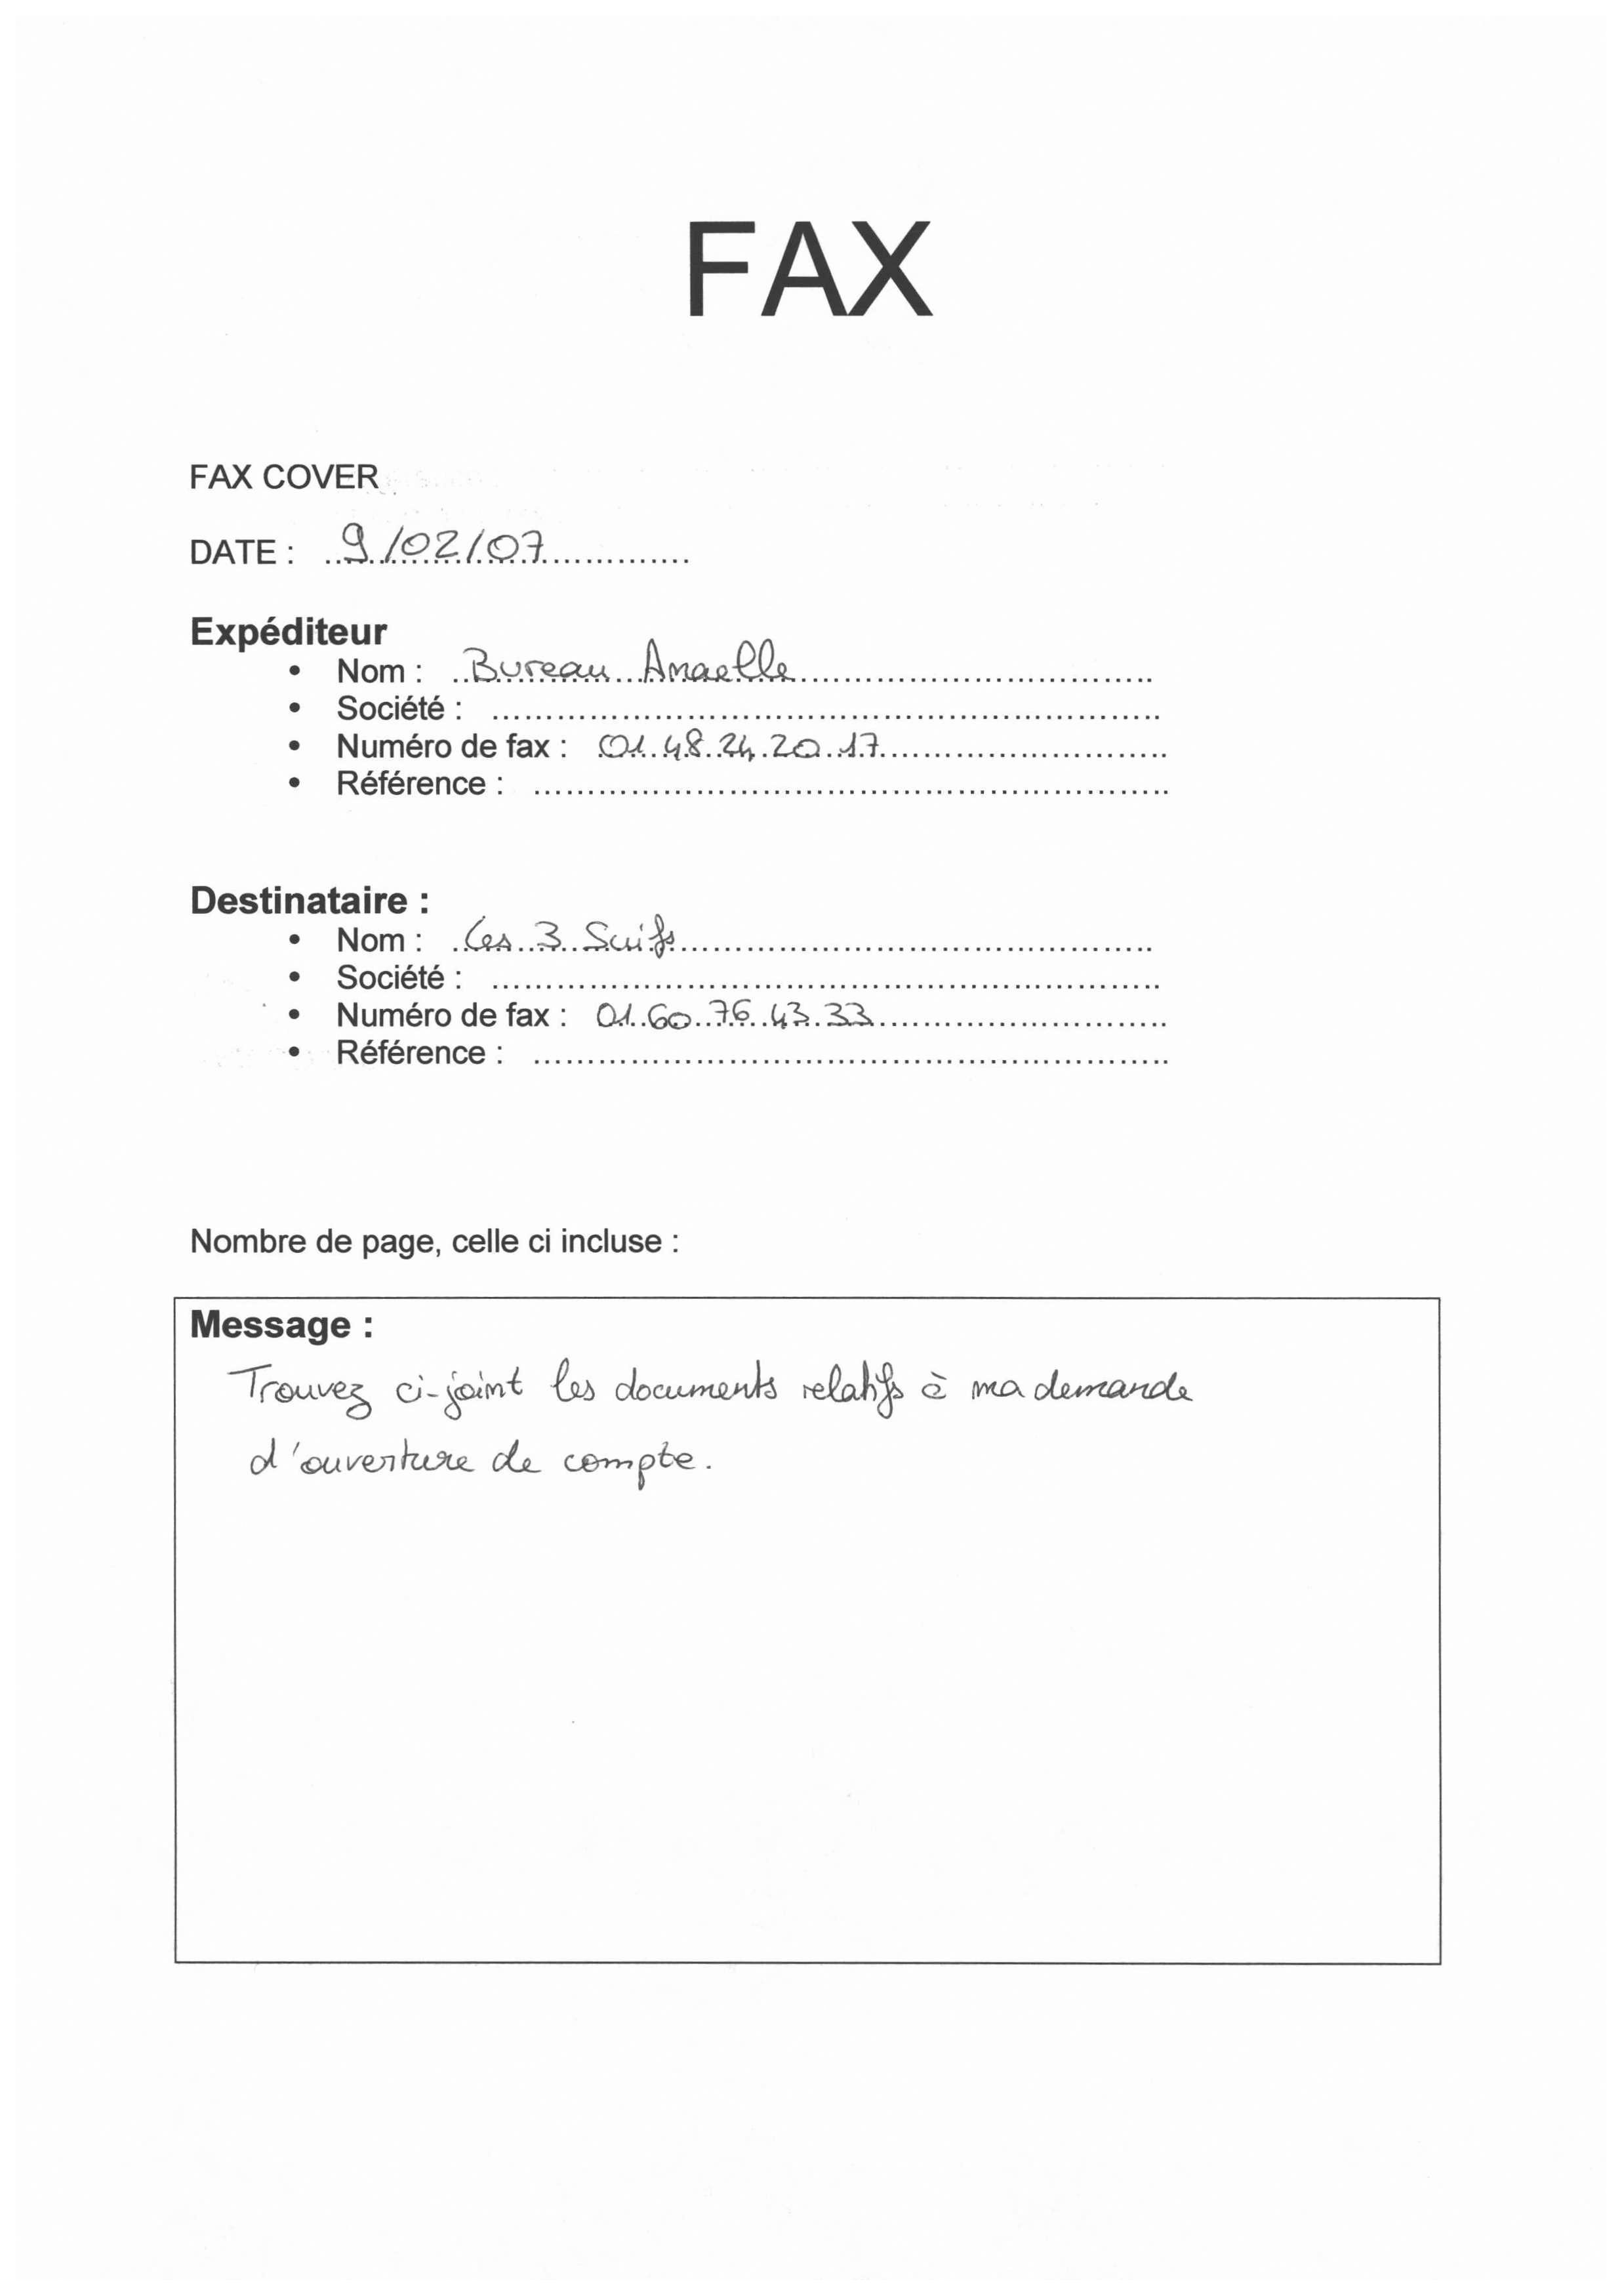 FAX
FAX COVER
DATE : 9/02/07
Expéditeur
• Nom : Bureau Anaelle
• Société :
• Numéro de fax : 01.48.24.20.17
• Référence :
Destinataire :
• Nom : Les 3 Suifs
• Société :
• Numéro de fax : 01.60.76.43.33
• Référence :
Nombre de page, celle ci incluse :
Message :
Trouvez ci-joint les documents relatifs à ma demande
d'ouverture de compte.